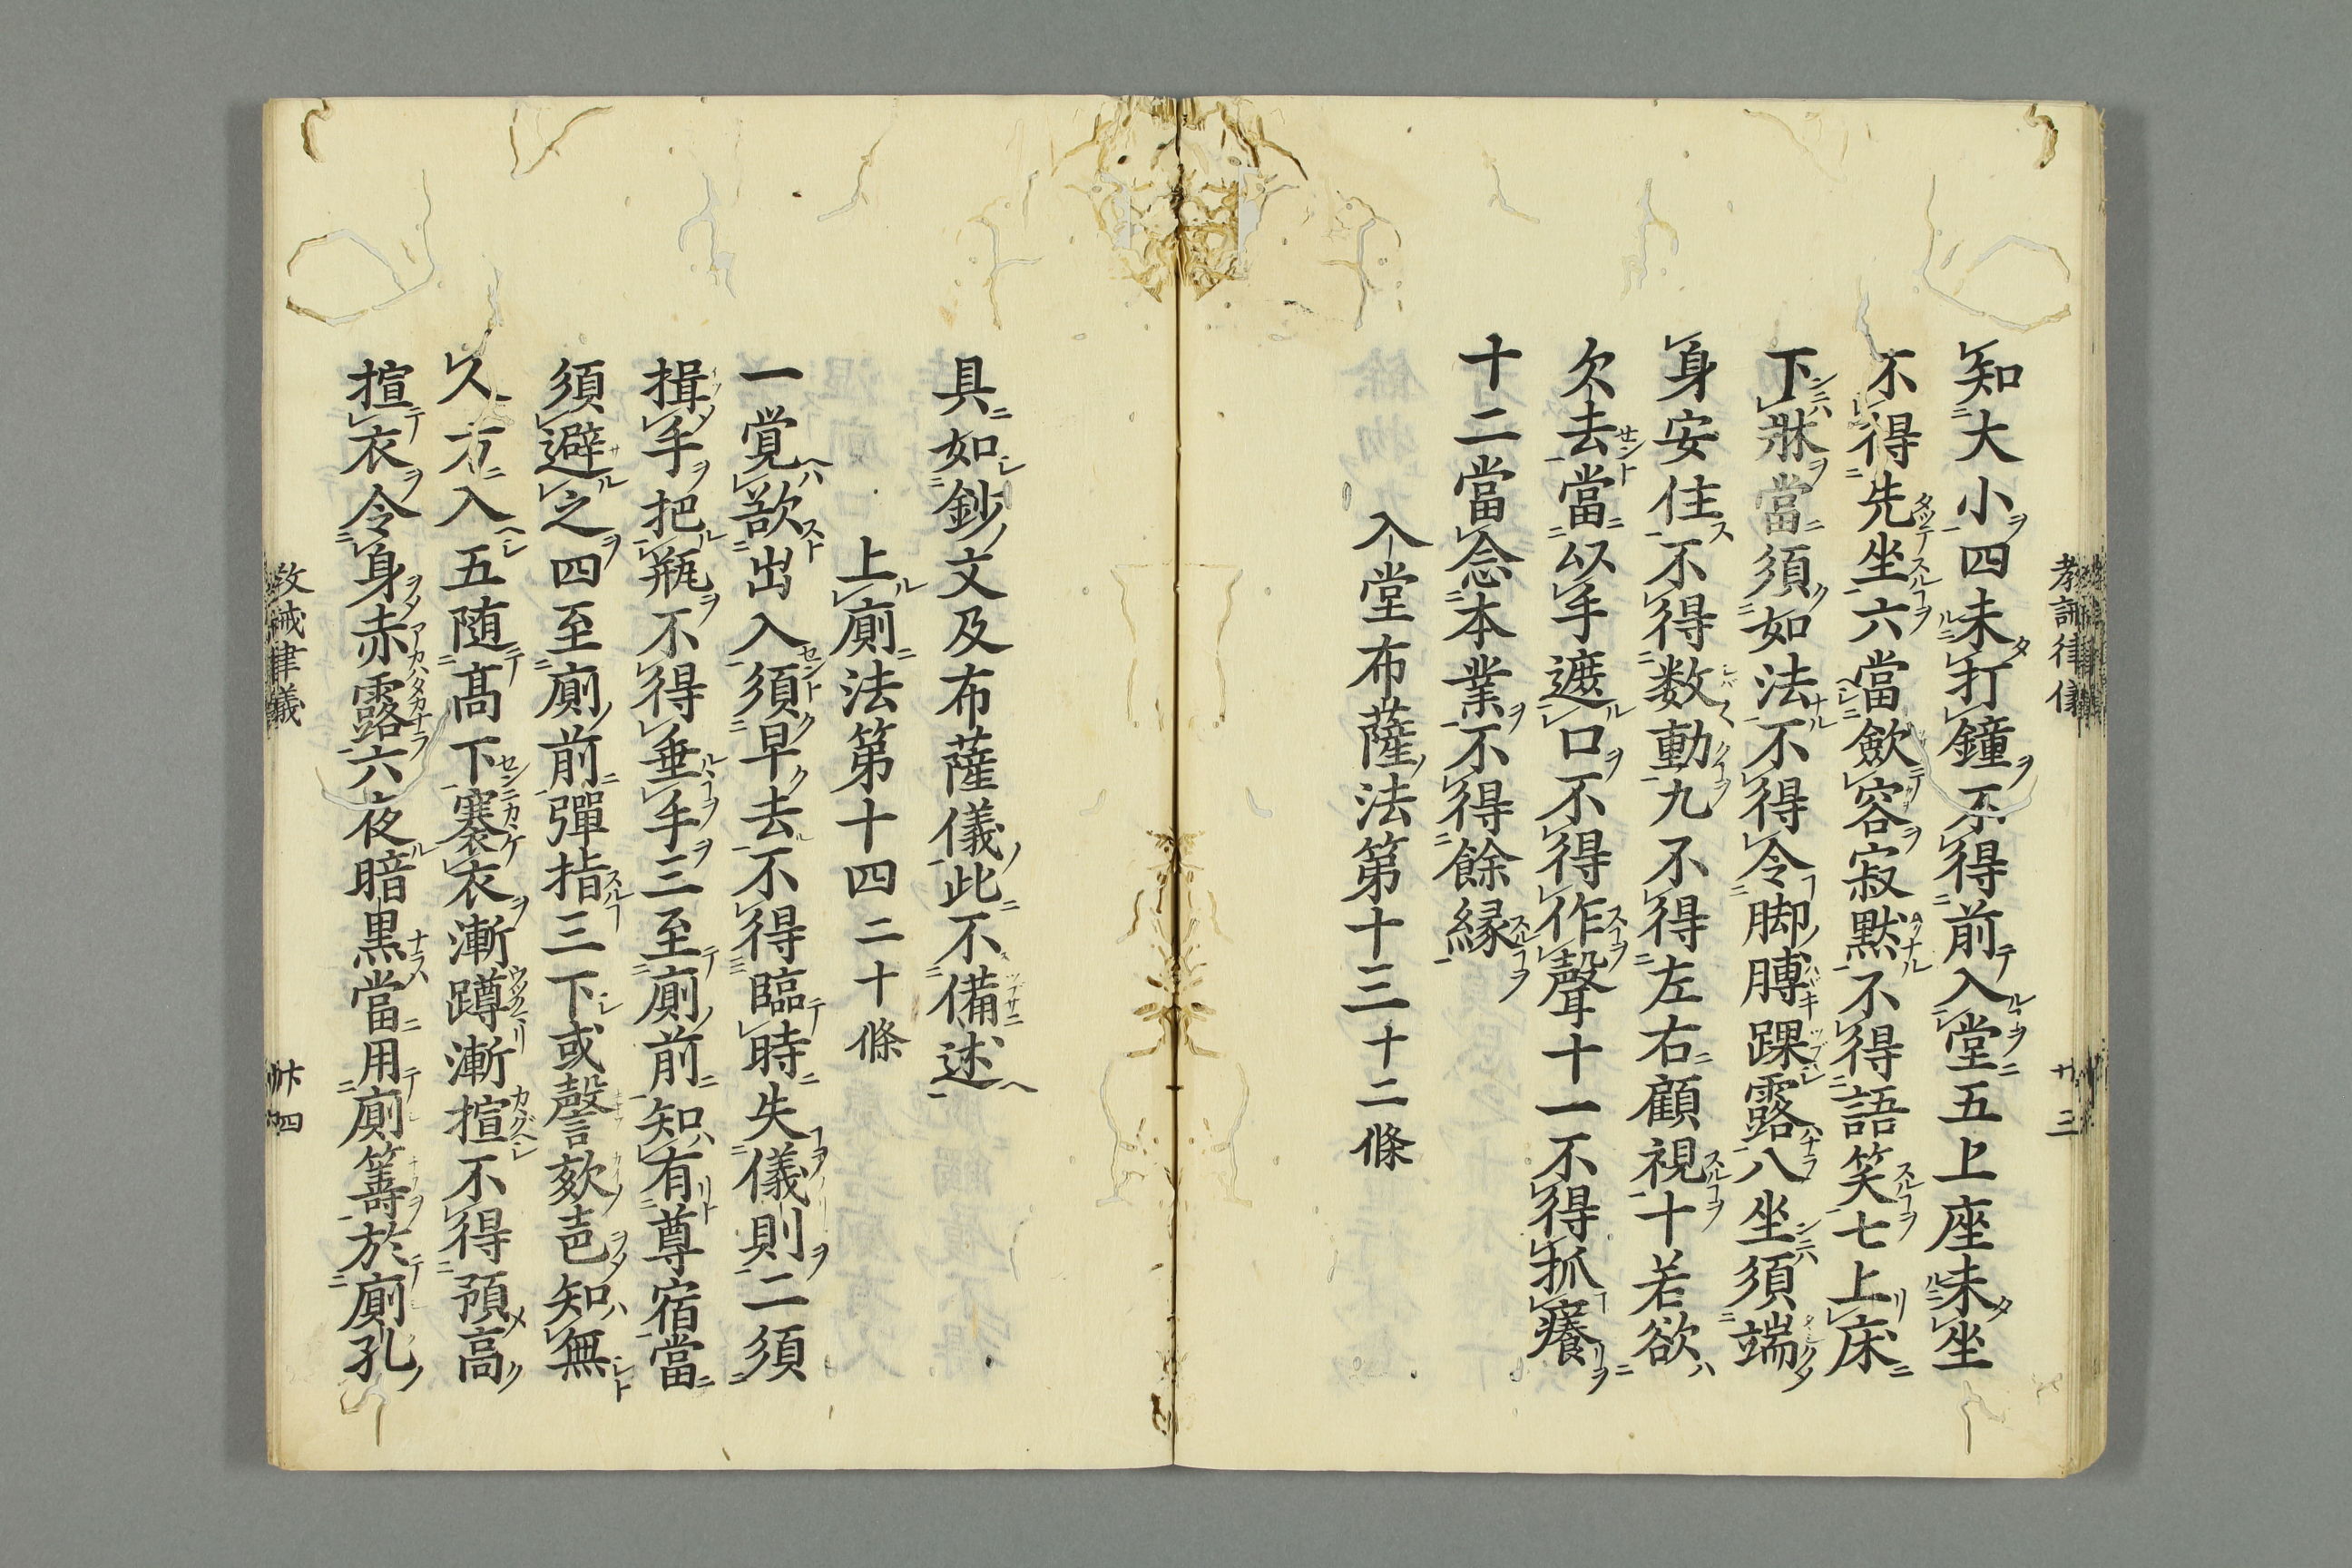 知大小四未打鐘不得前入堂五上座未坐
不得先坐六當歛容寂黙不得語笑七上床
下牀當須如法不得令脚膊踝露八坐須端
身安住不得数動九不得左右顧視十若欲
欠去當以手遮口不得作聲十一不得抓癢
十二當念本業不得餘縁
入堂布薩法第十三十二條
具如鈔文及布薩儀此不備述
上廁法第十四二十條
一覚欲出入須早去不得臨時失儀則二須
揖手把瓶不得垂手三至廁前知有尊宿當
須避之四至廁前彈指三下或謦欬声知無
久方入五随髙下褰衣漸蹲漸揎不得預高
揎衣令身赤露六夜暗黒當用廁籌於廁孔
教誡律儀
廿四